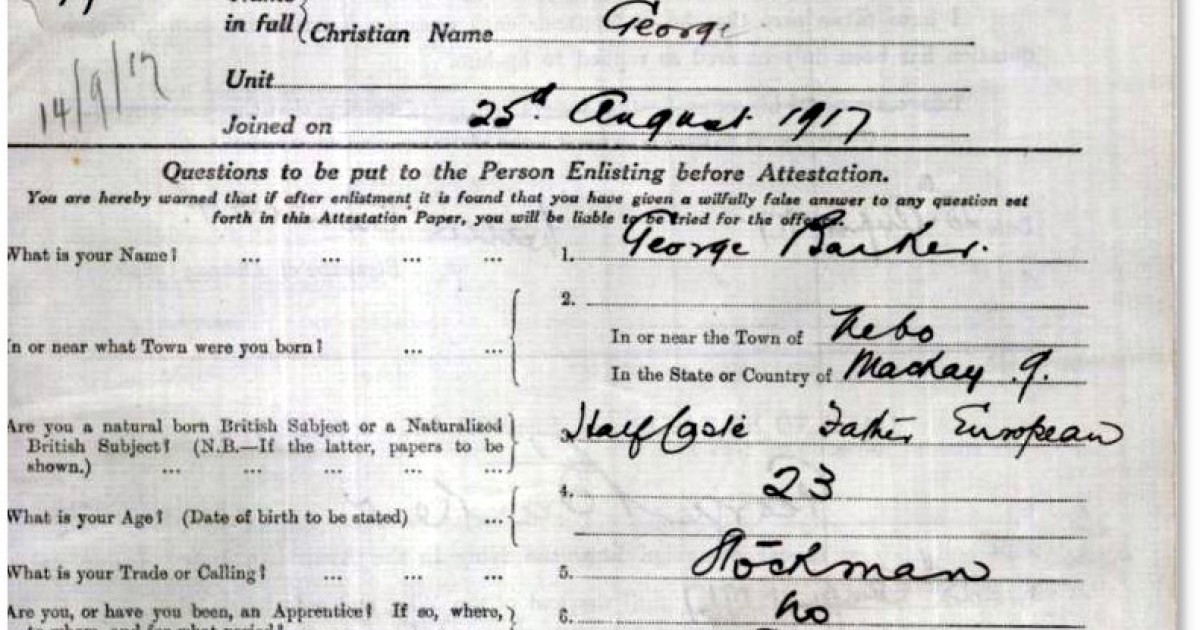 in full ( Christian Name George
14/9/17
Unit
Joined on 25th August 1917
Questions to be put to the Person Enlisting before Attestation.
You are hereby warned that if after enlistment it is found that you have given a wilfully false answer to any question set
forth in this Attestation Paper, you will be liable to be tried for the offence.
What is your Name? ... ... ... ... 1. George Barker.
2.
In or near what Town were you born? ... ... In or near the Town of Nebo
In the State or Country of Mackay Q.
Are you a natural born British Subject or a Naturalized
British Subject? (N.B.—If the latter, papers to be
shown.) ... ... ... ... ... 3. Half Caste Father European
What is your Age? (Date of birth to be stated) ... 4. 23
What is your Trade or Calling? ... ... ... 5. Stockman
Are you, or have you been, an Apprentice? If so, where, 6. No
to whom, and for what period?